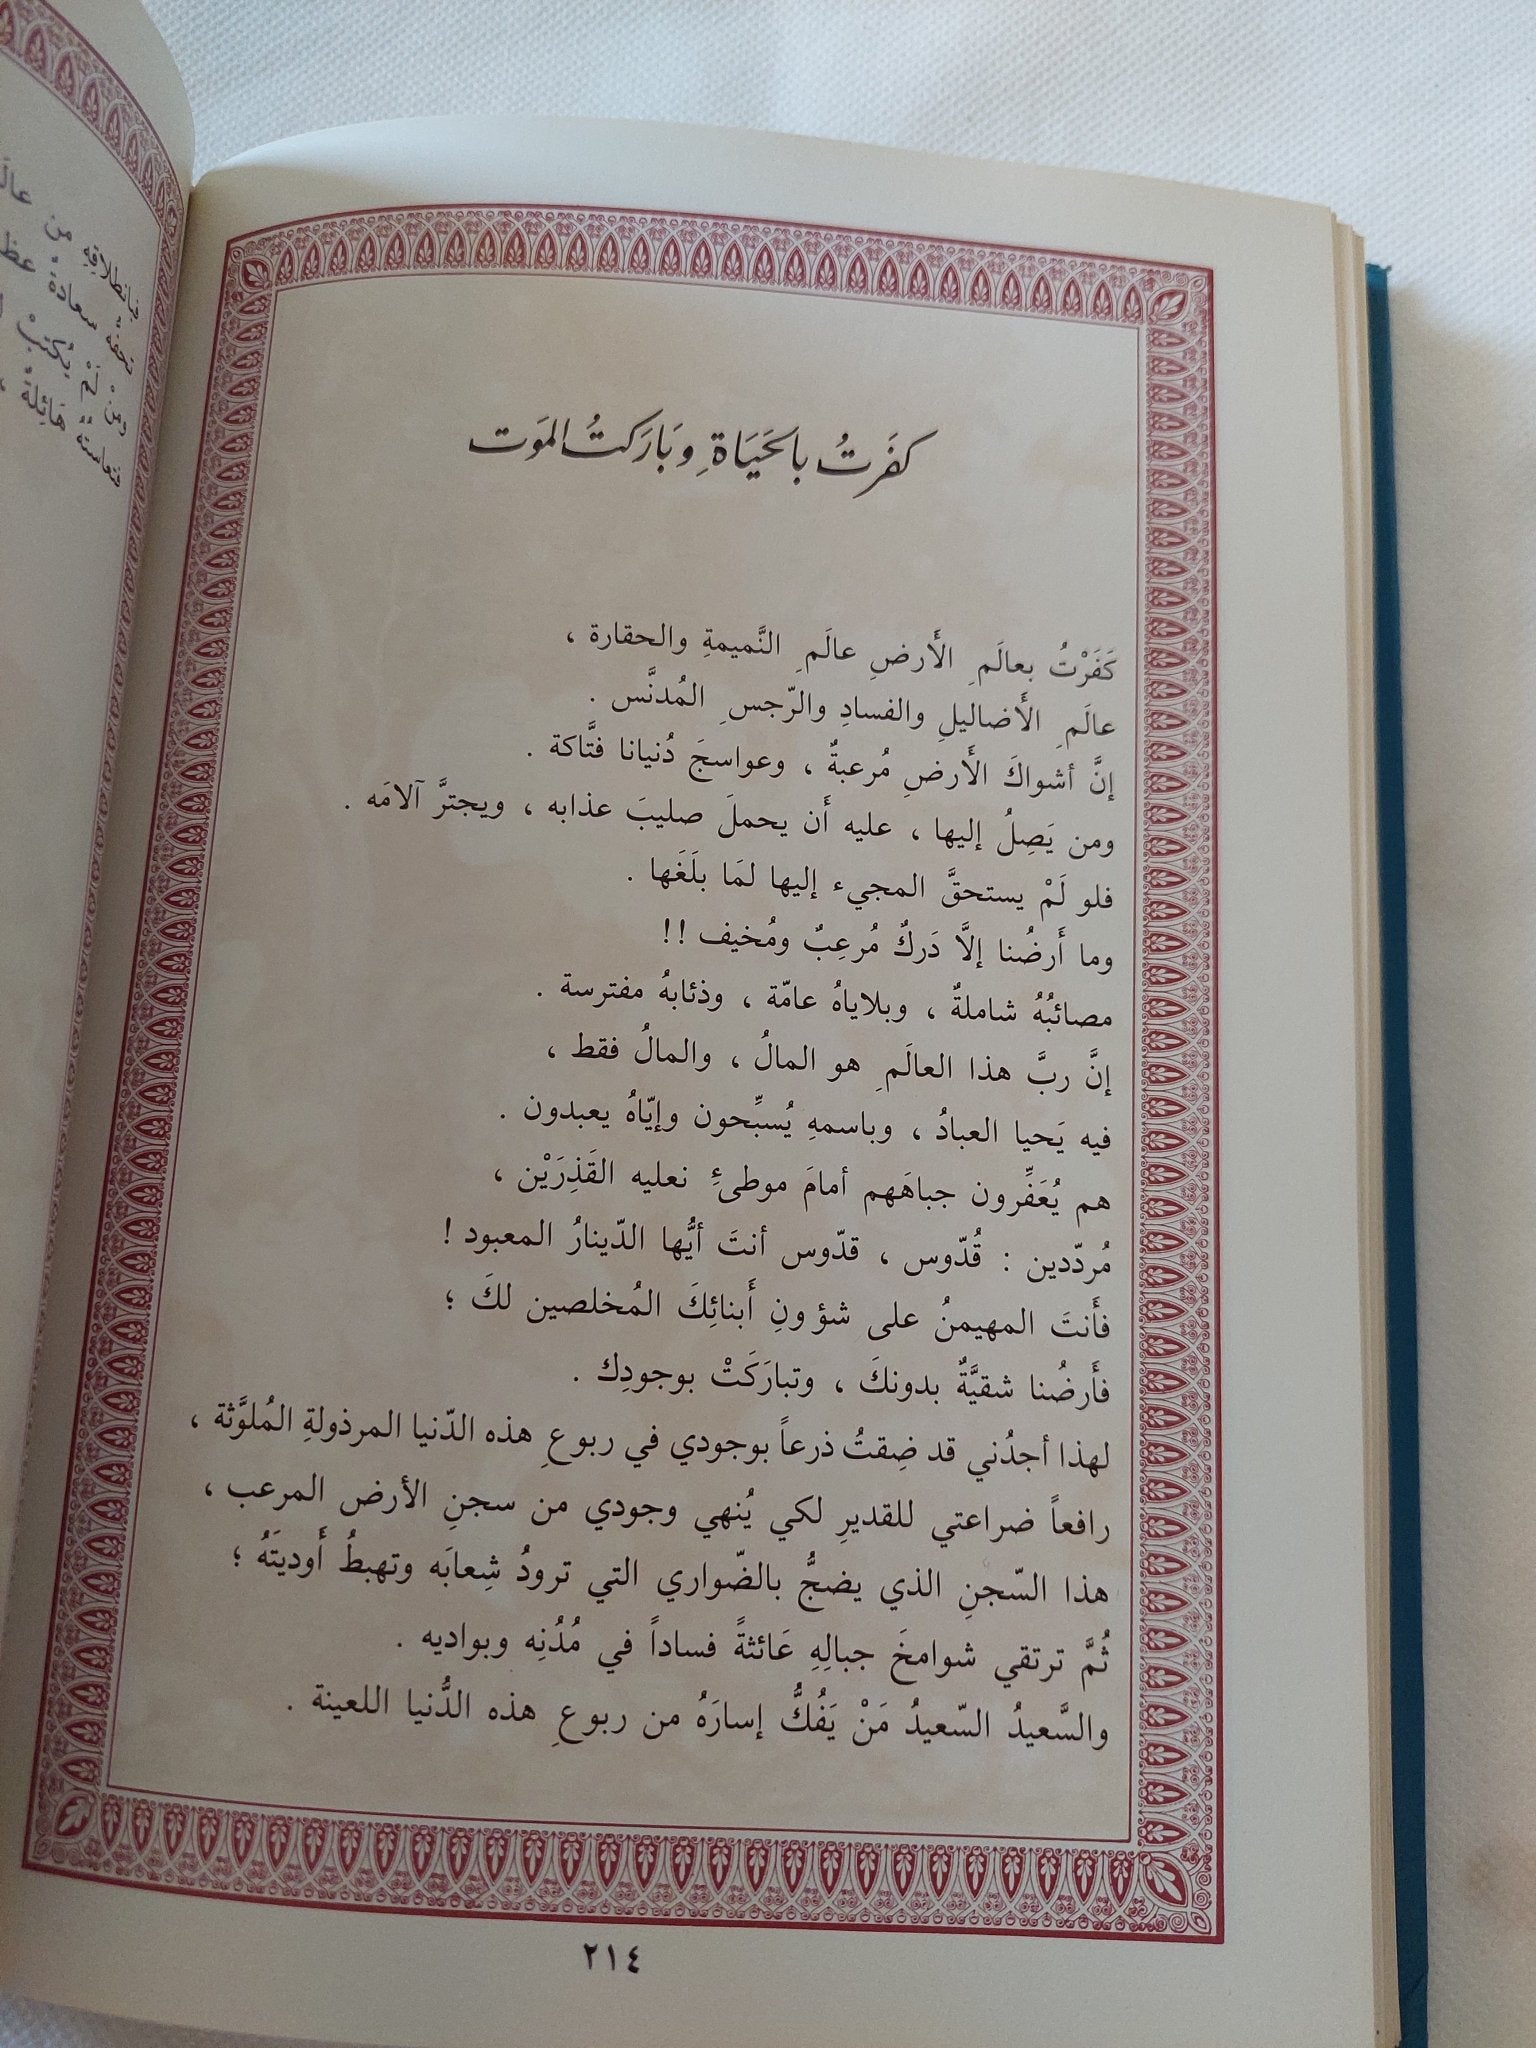 كفَرتُ بالحَيَاةِ وبَاركتُ الموَت
كَفَرْتُ بعالَمِ الأَرضِ عالَمِ النَّميمةِ والحقارة ،
عالَمِ الأَضاليلِ والفسادِ والرّجسِ المُدنَّس .
إنَّ أشواكَ الأَرضِ مُرعبةٌ ، وعواسجَ دُنيانا فتَّاكة .
ومن يَصِلُ إليها ، عليه أَن يحملَ صليبَ عذابه ، ويجترَّ آلامَه .
فلو لَمْ يستحقَّ المجيء إليها لمَا بلَغَها .
وما أَرضُنا إلاَّ دَركٌ مُرعِبٌ ومُخيف !!
مصائبُهُ شاملةٌ ، وبلاياهُ عامّة ، وذئابهُ مفترسة .
إنَّ ربَّ هذا العالَمِ هو المالُ ، والمالُ فقط ،
فيه يَحيا العبادُ ، وباسمهِ يُسبِّحون وإيّاهُ يعبدون .
هم يُعَفِّرون جباهَهم أمامَ موطىءِ نعليه القَذِرَيْن ،
مُردّدين : قُدّوس ، قدّوس أنتَ أيُّها الدّينارُ المعبود !
فأَنتَ المهيمنُ على شؤونِ أَبنائِكَ المُخلصين لكَ ؛
فأَرضُنا شقيَّةٌ بدونكَ ، وتبارَكَتْ بوجودِك .
لهذا أجدُني قد ضِقتُ ذرعاً بوجودي في ربوعِ هذه الدّنيا المرذولةِ المُلوَّثة ،
رافعاً ضراعتي للقديرِ لكي يُنهي وجودي من سجنِ الأرض المرعب ،
هذا السّجنِ الذي يضجُّ بالضّواري التي ترودُ شِعابَه وتهبطُ أَوديتَهُ ؛
ثُمَّ ترتقي شوامخَ جبالِهِ عَائثةً فساداً في مُدُنِه وبواديه .
والسَّعيدُ السّعيدُ مَنْ يَفُكُّ إسارَهُ من ربوعِ هذه الدُّنيا اللعينة .
٢١٤
فبانطلاقِهِ من
تحفّهُ سعادةٌ
ومَنْ لَمْ يُكتبْ
فتعاستُهُ هَائِلةٌ ،